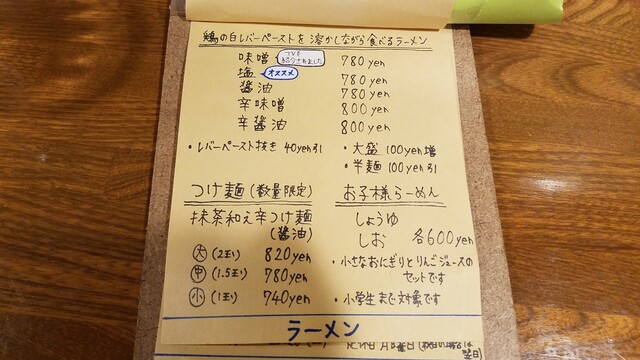 鶏の白レバーペーストを溶かしながら食べるラーメン
味噌 TVで紹介されました 780yen
塩 オススメ 780yen
醤油 780yen
辛味噌 800yen
辛醤油 800yen
・レバーペースト抜き 40yen引
・大盛 100yen増
・半麺 100yen引
つけ麺(数量限定)
抹茶和え辛つけ麺
(醤油)
大 (2玉) 820yen
中 (1.5玉) 780yen
小 (1玉) 740yen
お子様らーめん
しょうゆ
しお 各600yen
・小さなおにぎりとりんごジュースの
セットです
・小学生まで対象です
ラーメン
定休日 月曜日
翌日)